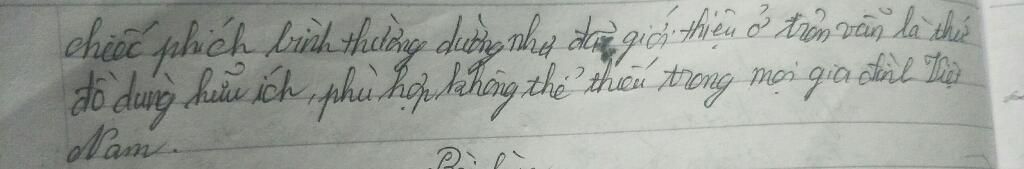 chiếc phích bình thường dường như đã giới thiệu ở trên vẫn là thứ
đồ dùng hữu ích, phù hợp không thể thiếu trong mọi gia đình Việt
Nam.